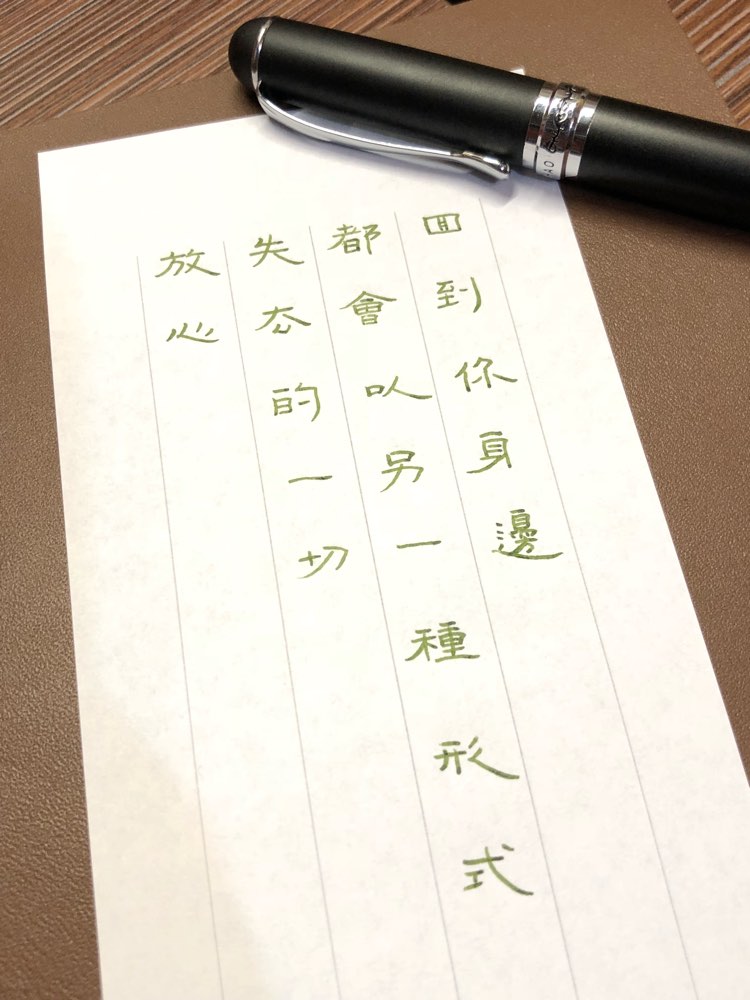 放心
失去的一切
都會以另一種形式
回到你身邊